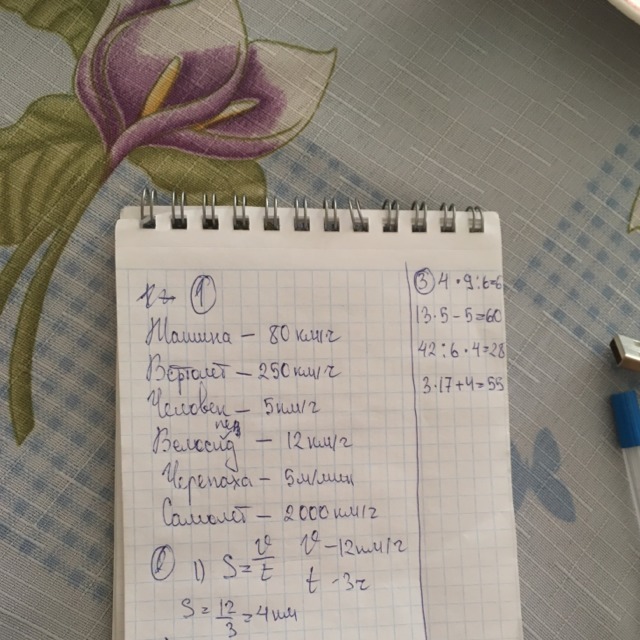 ①
Машина – 80 км/ч
Вертолёт – 250 км/ч
Человек – 5 км/ч
Велосипед – 12 км/ч
Черепаха – 5 м/мин
Самолёт – 2000 км/ч
② 1) S = v/t v – 12 км/ч
t – 3ч
S = 12/3 = 4 км
③ 4 · 9 : 6 = 6
13 · 5 – 5 = 60
42 : 6 · 4 = 28
3 · 17 + 4 = 55